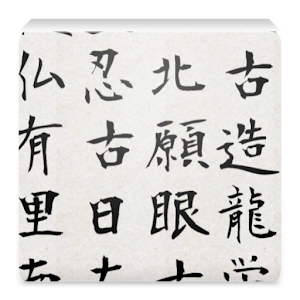 古造龍
北願眼
忍古日
仏有里